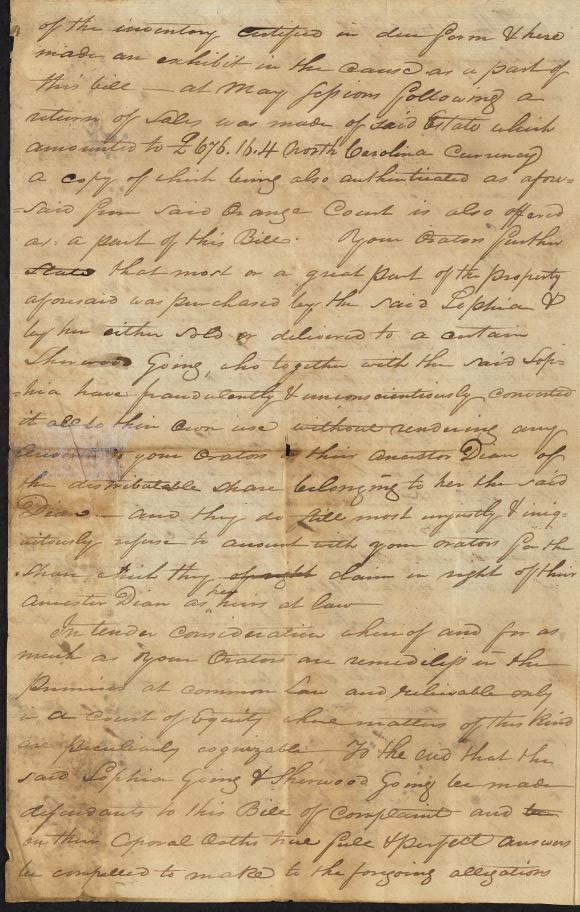 of the inventory certified in due form & here
made an exhibit in the cause as a part of
this bill — at May Sessions following a
return of Sales was made of said Estate which
amounted to £ 676.16.4 North Carolina Currency
a copy of which being also authenticated as afore-
-said from said Orange Court is also offered
as a part of this Bill. Your Orators further
state that most or a great part of the property
aforesaid was purchased by the said Sophia &
by her either sold or delivered to a certain
Sherwood Going, who together with the said Sop-
-hia have fraudulently & unconscientiously converted
it all to their own use without rendering any
your Orators or their ancestor Dian of
the distributable share belonging to her the said
Dian — and they do still most unjustly & iniq-
uitously refuse to account with your orators for the
share which they of right claim in right of their
Ancestor Dian as her heirs at law —
In tender consideration whereof and for as
much as Your Orators are remediless in the
Premises at common Law and relievable only
in a Court of Equity where matters of this kind
are peculiarly cognizable — To the end that the
said Sophia Going & Sherwood Going be made
defendants to this Bill of Complaint and
on their Coporal Oaths true full & perfect answers
be compelled to make to the foregoing allegations